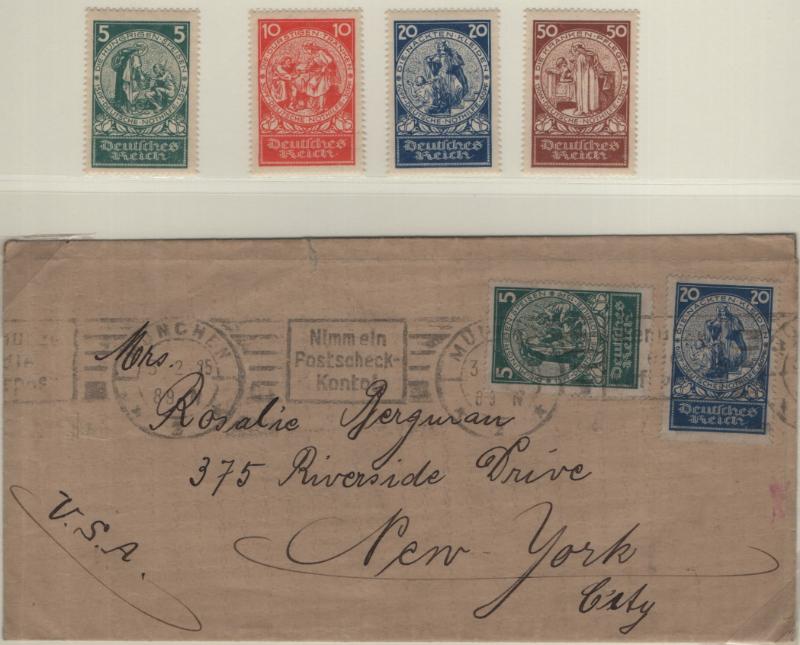 5 5
DIE HUNGRIGEN SPEISEN
DEUTSCHE NOTHILFE
Deutsches
Reich
10 10
DIE DURSTIGEN TRÄNKEN
DEUTSCHE NOTHILFE
Deutsches
Reich
20 20
DIE NACKTEN KLEIDEN
DEUTSCHE NOTHILFE
Deutsches
Reich
50 50
DIE KRANKEN PFLEGEN
DEUTSCHE NOTHILFE
Deutsches
Reich
MÜNCHEN
8-9 N
Nimm ein
Postscheck-
Konto!
5 5
Deutsches
Reich
20 20
DIE NACKTEN KLEIDEN
Deutsches
Reich
Mrs.
Rosalie Berguran
375 Riverside Drive
New-York
City
U.S.A.